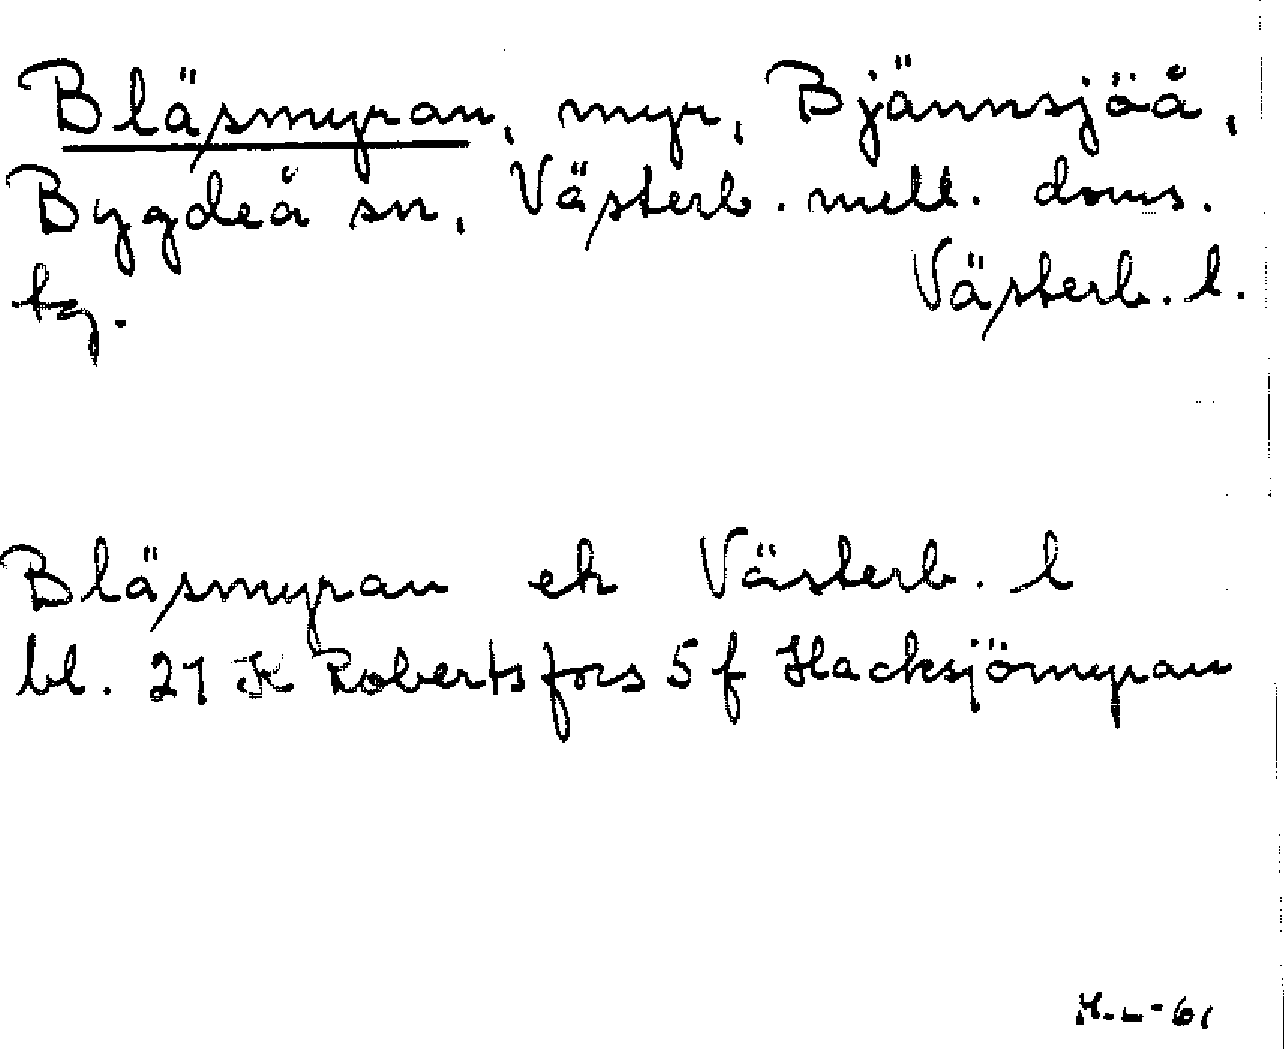 Bläsmyran, myr, Bjännsjöå,
Bygdeå sn, Västerb. mell. doms.
tg. Västerb. l.
Bläsmyran ek Västerb. l
bl. 21 K Robertsfors 5 f Hacksjömyran
H.L-61